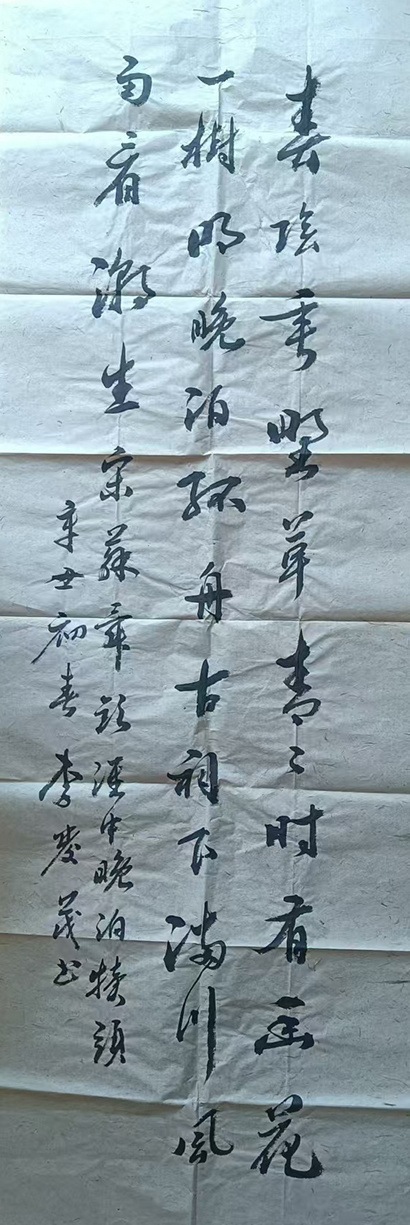 春阴垂野草青々时有幽花
一樹明晚泊孤舟古祠下满川風
雨看潮生宋蘇舜欽淮中晚泊犊頭
辛丑初春李发茂书